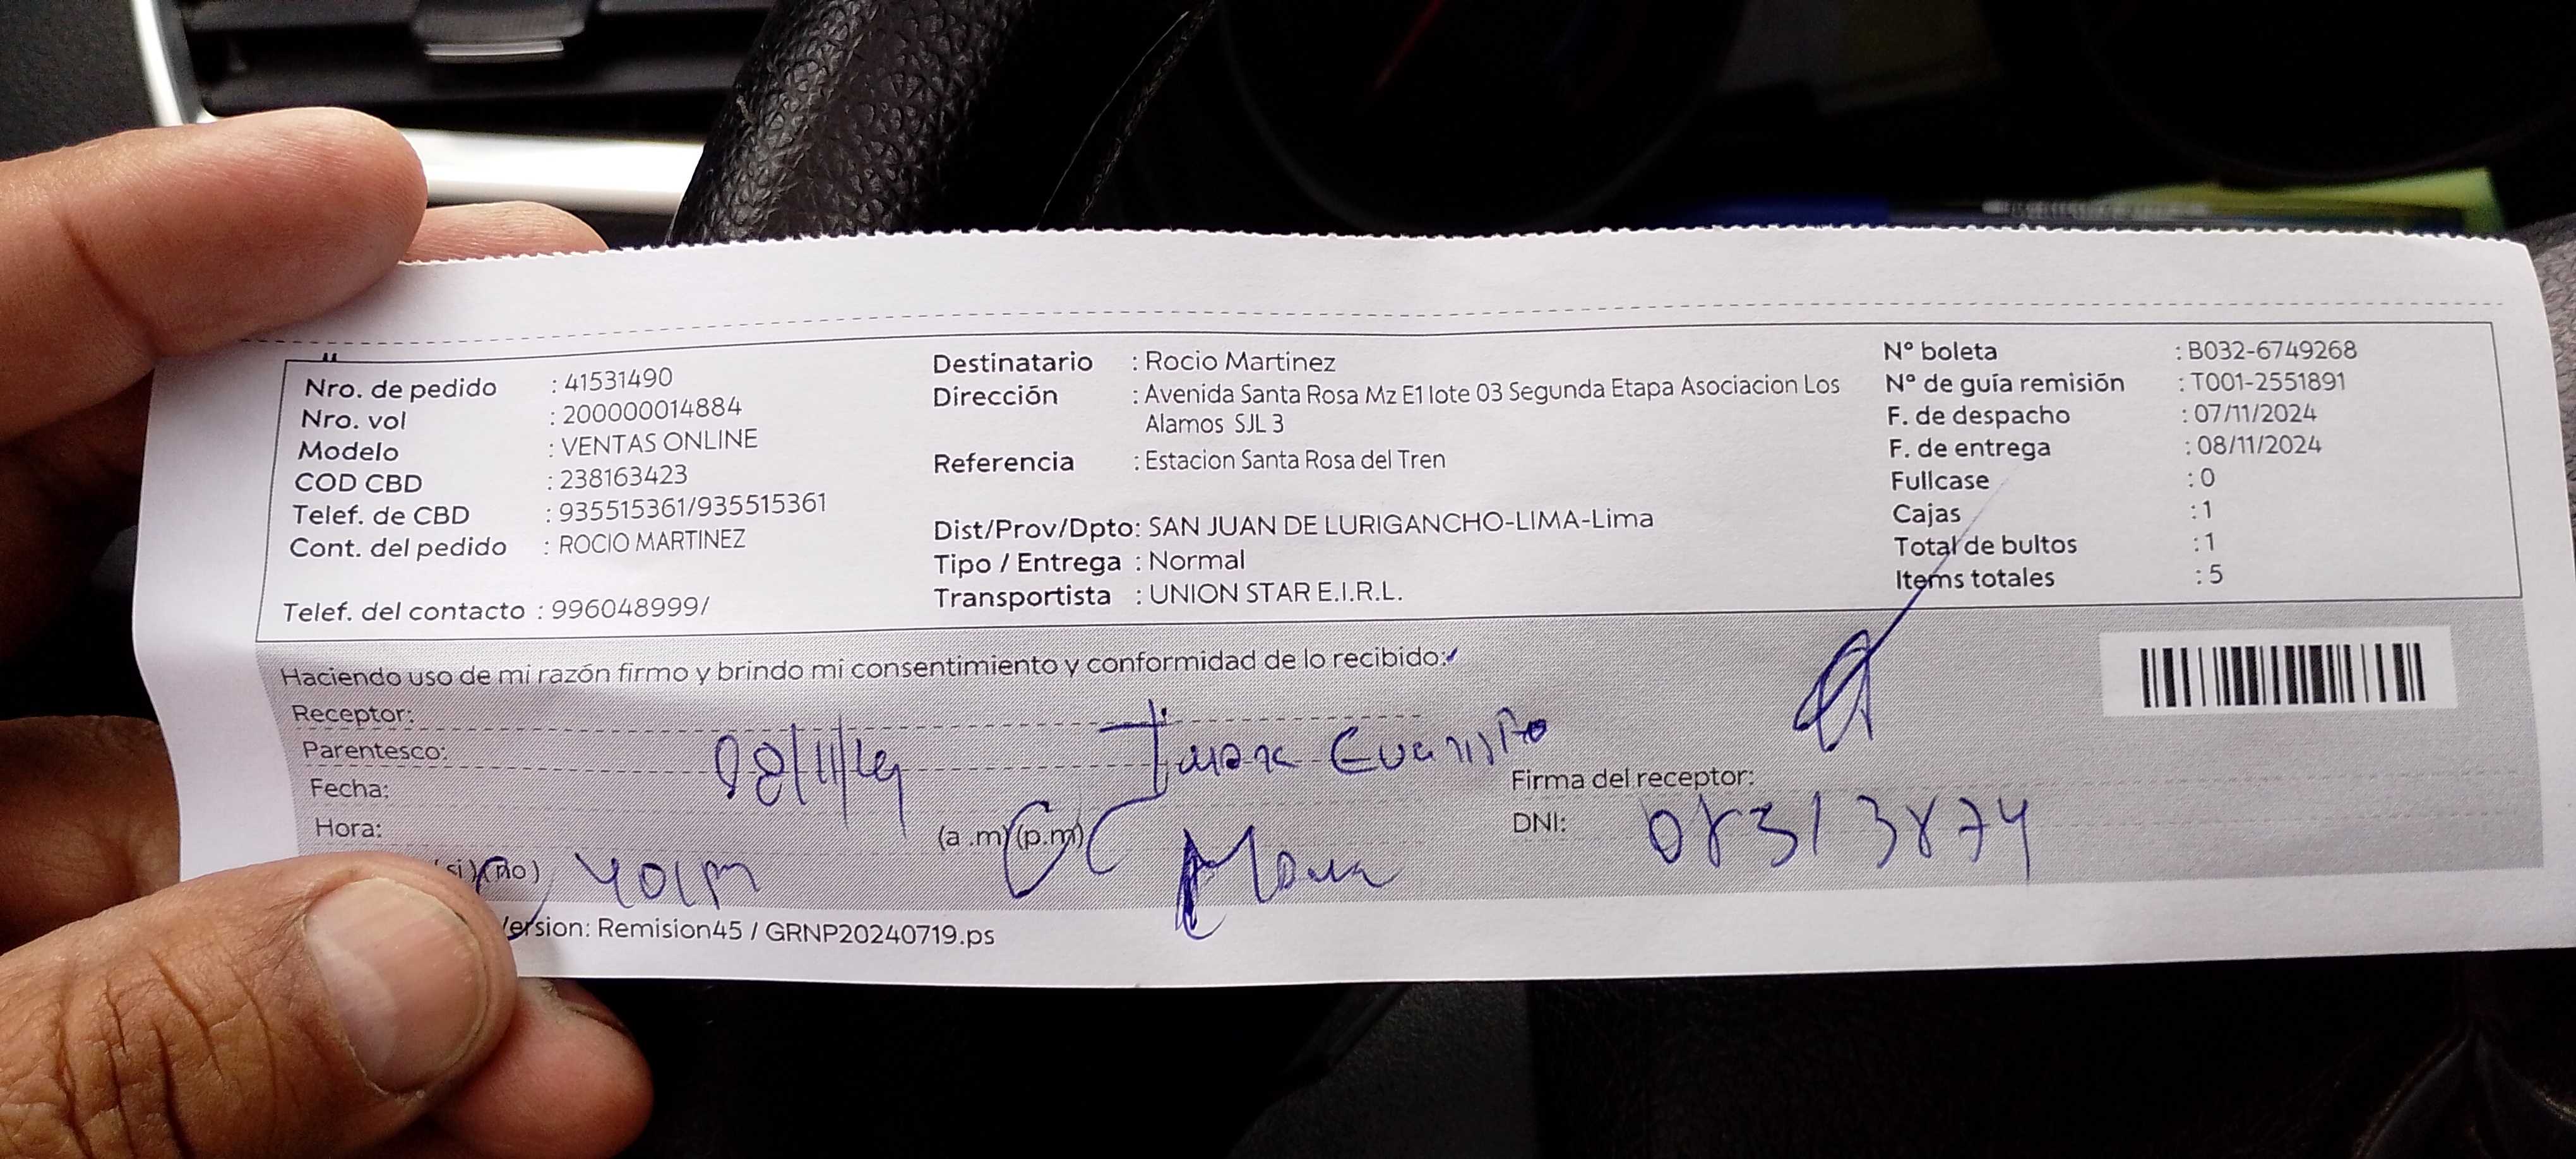 Nro. de pedido : 41531490
Nro. vol : 200000014884
Modelo : VENTAS ONLINE
COD CBD : 238163423
Telef. de CBD : 935515361/935515361
Cont. del pedido : ROCIO MARTINEZ
Telef. del contacto : 996048999/
Destinatario : Rocio Martinez
Dirección : Avenida Santa Rosa Mz E1 lote 03 Segunda Etapa Asociacion Los
Alamos SJL 3
Referencia : Estacion Santa Rosa del Tren
Dist/Prov/Dpto: SAN JUAN DE LURIGANCHO-LIMA-Lima
Tipo / Entrega : Normal
Transportista : UNION STAR E.I.R.L.
N° boleta : B032-6749268
N° de guía remisión : T001-2551891
F. de despacho : 07/11/2024
F. de entrega : 08/11/2024
Fullcase : 0
Cajas : 1
Total de bultos : 1
Items totales : 5
Haciendo uso de mi razón firmo y brindo mi consentimiento y conformidad de lo recibido:
Receptor:
Parentesco:
Fecha: 08/11/
Hora: (a.m)(p.m)
Firma del receptor:
DNI: 08313874
si)(no)
Version: Remision45 / GRNP20240719.ps